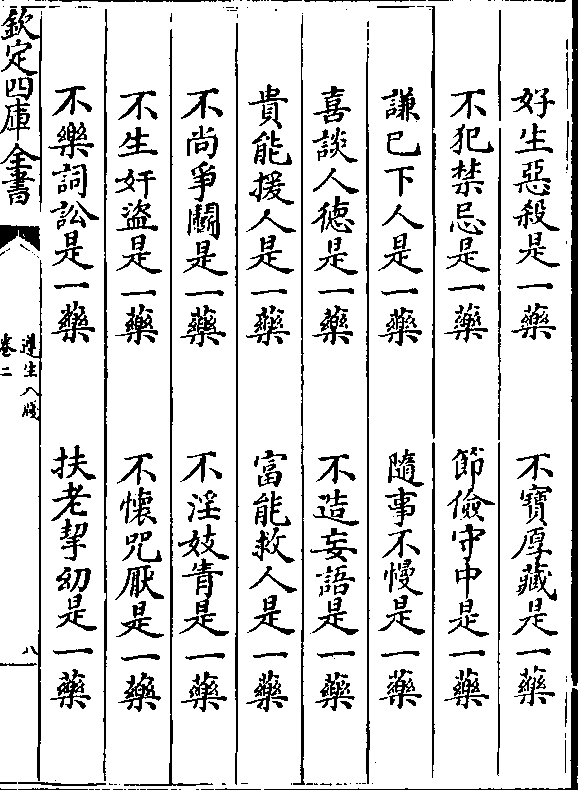 好生惡殺是一藥　不寳厚藏是一藥
不犯禁忌是一藥　節儉守中是一藥
謙已下人是一藥　隨事不慢是一藥
喜談人德是一藥　不造妄語是一藥
貴能援人是一藥　富能救人是一藥
不尚爭鬭是一藥　不淫妓青是一藥
不生奸盜是一藥　不懐咒厭是一藥
不樂詞訟是一藥　扶老挈幼是一藥
欽定四庫全書
遵生八牋
卷二
八